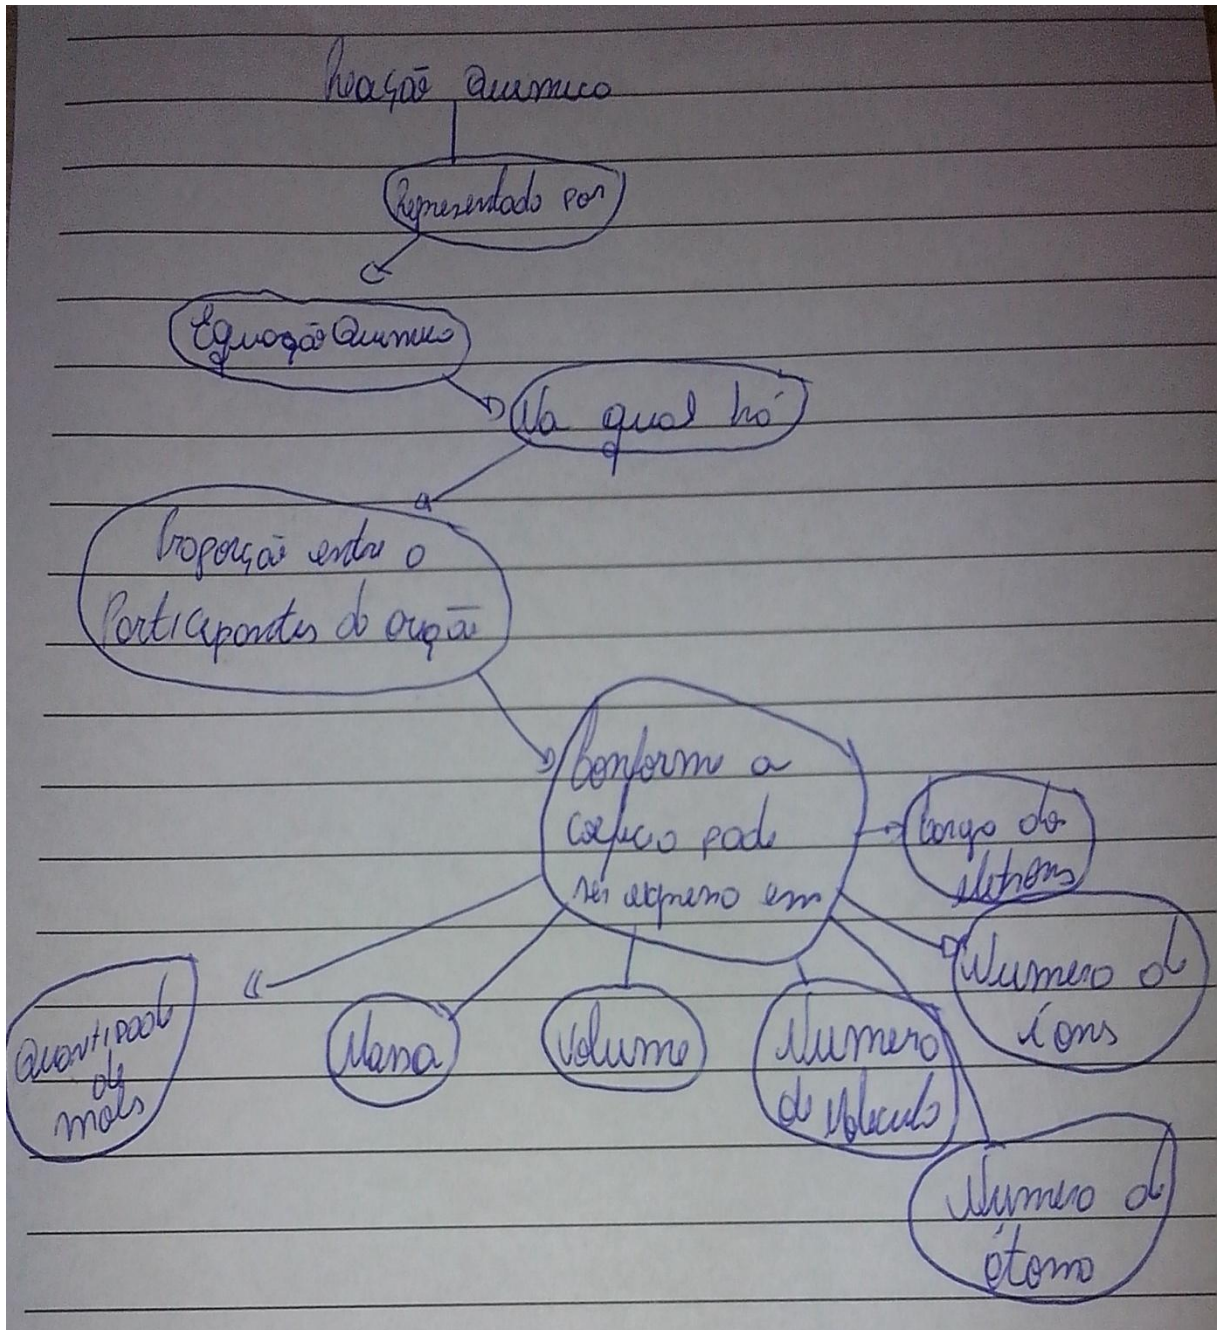 Reação Quimica
Representado por
Equação Quimica
Na qual há
Proporção entre o
Participantes da
Conforme a
pode
ser expresso em
Carga do
eletrons
Numero de
íons
Quantidade
de
mols
Massa
Volume
Numero
de Molecula
Numero de
átomo